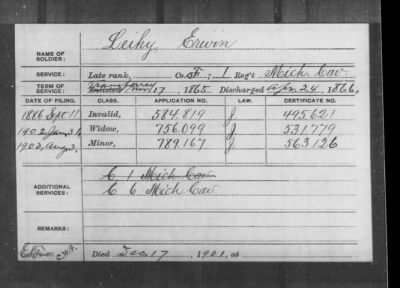 NAME OF SOLDIER: Leiky, Erwin
SERVICE: Late rank, Co. F; 1 Reg't Mich. Cav.
TERM OF SERVICE: Enlisted 17, 1865, Discharged Apr. 24, 1866,
DATE OF FILING. CLASS. APPLICATION NO. LAW. CERTIFICATE NO.
1886 Sept. 11 Invalid, 584.819 J 495.621
1902 Jan. Widow, 756.099 J 531.779
1903, Aug. 3, Minor, 789.167 J 563.126
ADDITIONAL SERVICES: C, 1 Mich Cav
C 6 Mich Cav.
REMARKS:
Died Dec 17, 1901, at